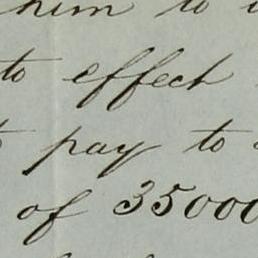 him to
to effect
pay to
of 35000